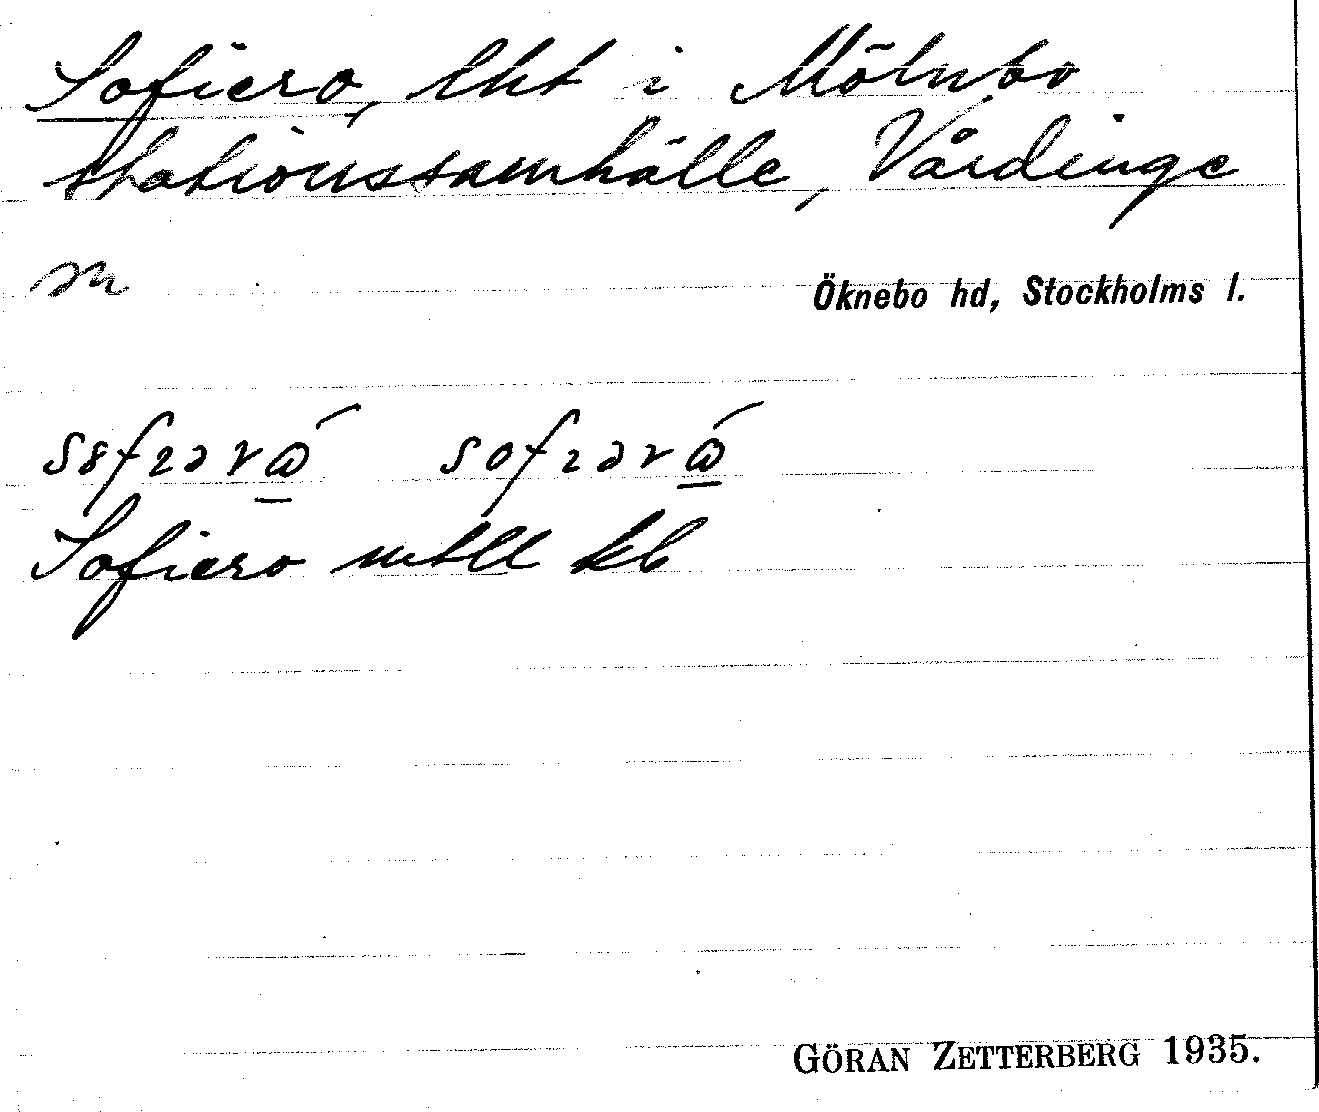 Sofiero, lht i Mölnbo
stationssamhälle, Vårdinge
sn
Öknebo hd, Stockholms l.
Sofiero mtll kb
GÖRAN ZETTERBERG 1935.